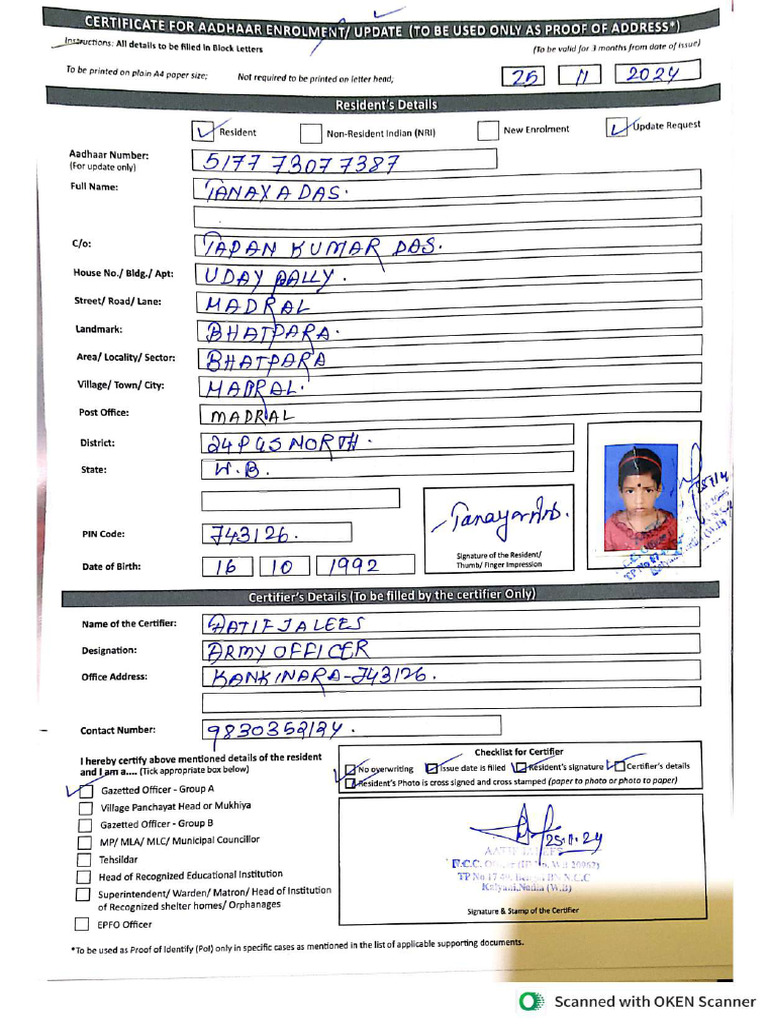 CERTIFICATE FOR AADHAAR ENROLMENT/ UPDATE (TO BE USED ONLY AS PROOF OF ADDRESS*)
Instructions: All details to be filled in Block Letters
(To be valid for 3 months from date of issue)
To be printed on plain A4 paper size; Not required to be printed on letter head;
25 11 2024
Resident's Details
Resident Non-Resident Indian (NRI) New Enrolment Update Request
Aadhaar Number: 5177 7307 7387
(For update only)
Full Name: TANAYA DAS.
C/o: TAPAN KUMAR DAS.
House No./ Bldg./ Apt: UDAY PALLY.
Street/ Road/ Lane: MADRAL
Landmark: BHATPARA.
Area/ Locality/ Sector: BHATPARA
Village/ Town/ City: MADRAL.
Post Office: MADRAL
District: 24 PGS NORTH.
State: W.B.
PIN Code: 743126.
Signature of the Resident/
Thumb/ Finger Impression
Date of Birth: 16 10 1992
Certifier's Details (To be filled by the certifier Only)
Name of the Certifier: AATIF JALEES
Designation: ARMY OFFICER
Office Address: KANKINARA-743126.
Contact Number: 9830352124.
I hereby certify above mentioned details of the resident
and I am a.... (Tick appropriate box below)
Gazetted Officer - Group A
Village Panchayat Head or Mukhiya
Gazetted Officer - Group B
MP/ MLA/ MLC/ Municipal Councillor
Tehsildar
Head of Recognized Educational Institution
Superintendent/ Warden/ Matron/ Head of Institution
of Recognized shelter homes/ Orphanages
EPFO Officer
Checklist for Certifier
No overwriting Issue date is filled Resident's signature Certifier's details
Resident's Photo is cross signed and cross stamped (paper to photo or photo to paper)
25.11.24
AATIF JALEES
N.C.C. Officer
Kalyani, Nadia (W.B)
Signature & Stamp of the Certifier
*To be used as Proof of Identify (PoI) only in specific cases as mentioned in the list of applicable supporting documents.
Scanned with OKEN Scanner